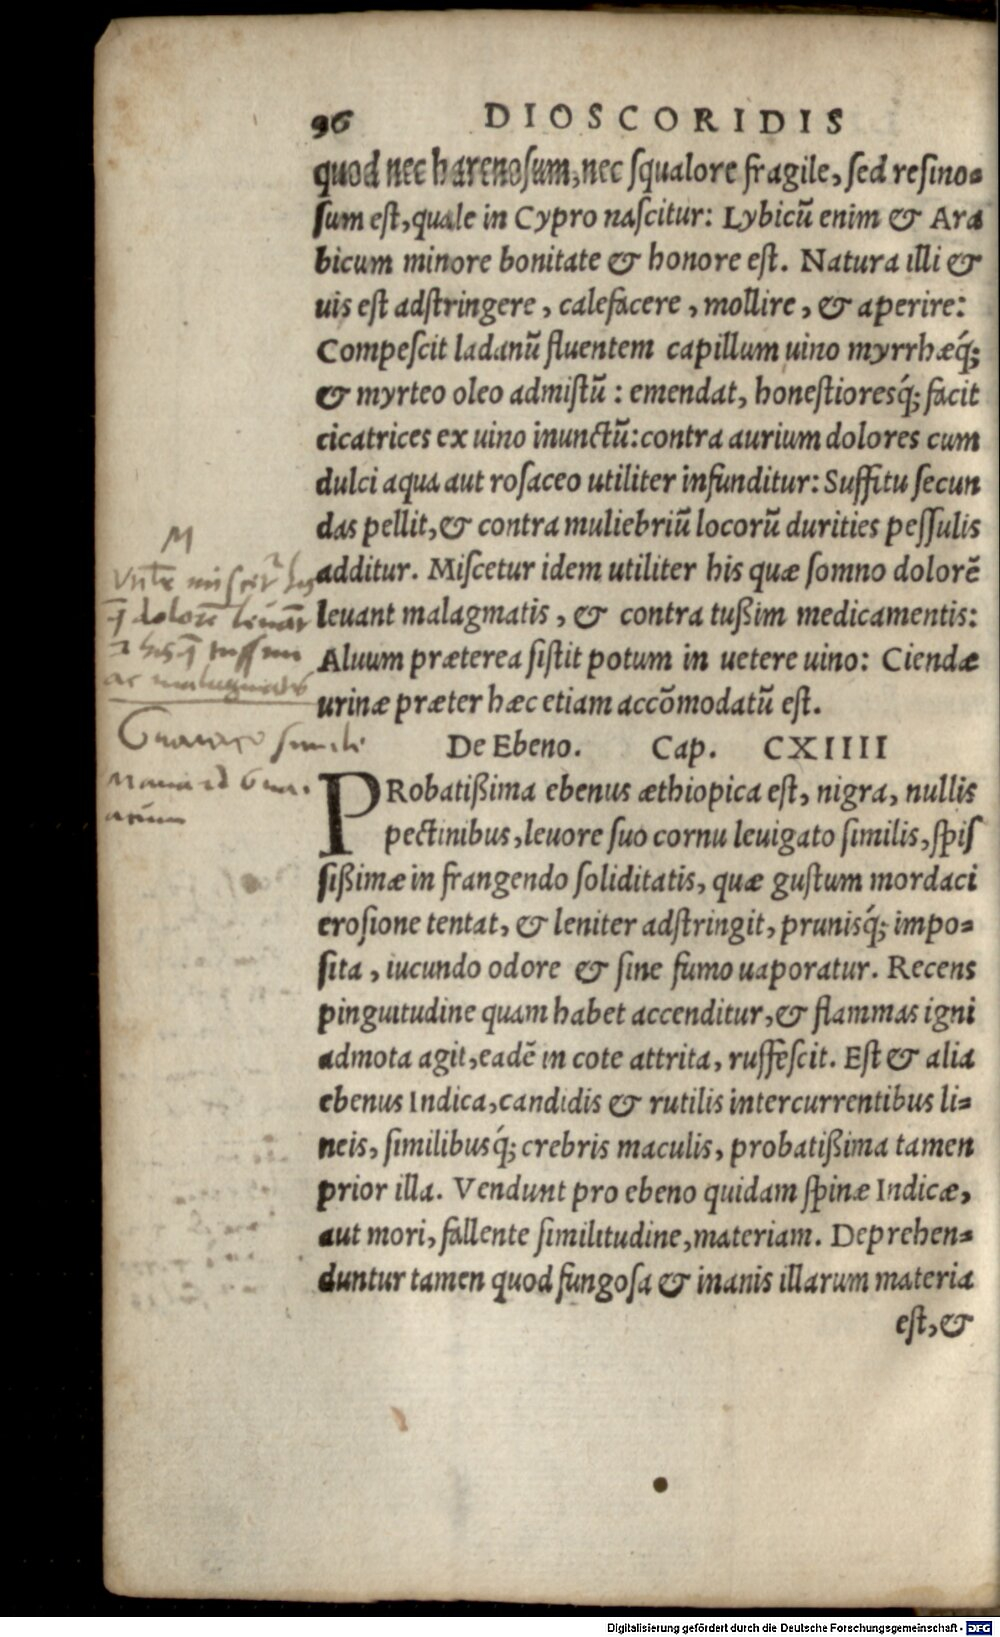 96 DIOSCORIDIS
quod nec harenosum, nec squalore fragile, sed resino=
sum est, quale in Cypro nascitur: Lybicũ enim & Ara
bicum minore bonitate & honore est. Natura illi &
uis est adstringere, calefacere, mollire, & aperire:
Compescit ladanũ fluentem capillum uino myrrhæq́;
& myrteo oleo admistũ: emendat, honestioresq́; facit
cicatrices ex uino inunctũ: contra aurium dolores cum
dulci aqua aut rosaceo utiliter infunditur: Suffitu secun
das pellit, & contra muliebriũ locorũ durities pessulis
additur. Miscetur idem utiliter his quæ somno dolorẽ
leuant malagmatis, & contra tußim medicamentis:
Aluum præterea sistit potum in uetere uino: Ciendæ
urinæ præter hæc etiam accõmodatũ est.
M
De Ebeno. Cap. CXIIII
PRobatißima ebenus æthiopica est, nigra, nullis
pectinibus, leuore suo cornu leuigato similis, spis
sißimæ in frangendo soliditatis, quæ gustum mordaci
erosione tentat, & leniter adstringit, prunisq́; impo=
sita, iucundo odore & sine fumo uaporatur. Recens
pinguitudine quam habet accenditur, & flammas igni
admota agit, eadẽ in cote attrita, ruffescit. Est & alia
ebenus Indica, candidis & rutilis intercurrentibus li=
neis, similibusq́; crebris maculis, probatißima tamen
prior illa. Vendunt pro ebeno quidam spinæ Indicæ,
aut mori, fallente similitudine, materiam. Deprehen=
duntur tamen quod fungosa & inanis illarum materia
est, &
Digitalisierung gefördert durch die Deutsche Forschungsgemeinschaft - DFG